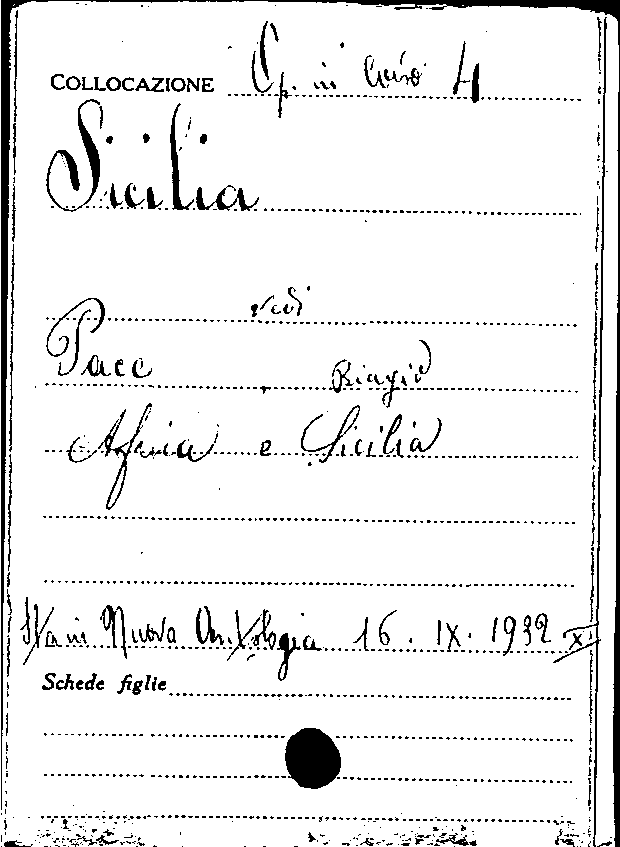 COLLOCAZIONE Op. in corso 4
Sicilia
vedi
Pace, Biagio
Africa e Sicilia
Sta in Nuova Antologia 16. IX. 1932 XI
Schede figlie